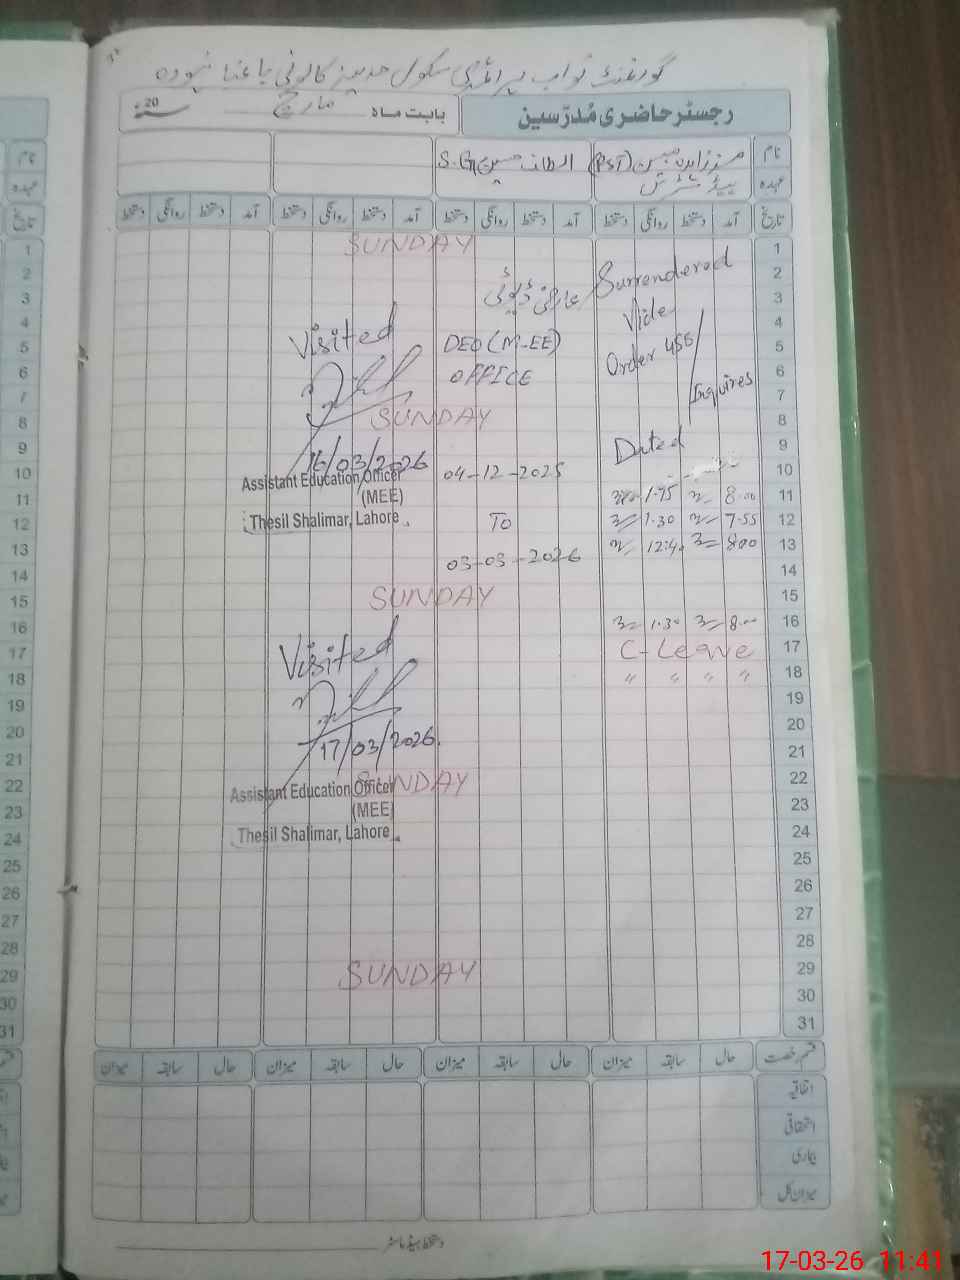 گورنمنٹ نواب پرائمری سکول مدینہ کالونی باغبانپورہ
رجسٹر حاضری مُدرّسین
بابت ماہ مارچ 20ء
نام
(PST)
الطاف حسین S.G
عہدہ
ہیڈ مسٹرس
تاریخ آمد دستخط روانگی دستخط آمد دستخط روانگی دستخط آمد دستخط روانگی دستخط آمد دستخط روانگی دستخط
1 SUNDAY
2 Surrendered
3 عارضی ڈیوٹی
4 Vide
Visited
5 DEO (M-EE) Order 455/
6 OFFICE
7 Inquires
8 SUNDAY
9 Dated
16/03/2026
10 04-12-2025
Assistant Education Officer
(MEE)
Thesil Shalimar, Lahore
11 8.00 1.75
12 7.55 1.30
To
13 8.00 12.4
03-03-2026
14
15 SUNDAY
16 8.00 1.30
17 C-Leave
Visited
18 〃 〃 〃 〃
19
20
17/03/2026
21
22 SUNDAY
Assistant Education Officer
23 (MEE)
24 Thesil Shalimar, Lahore
25
26
27
28
29 SUNDAY
30
31
قسم رخصت حال سابقہ میزان حال سابقہ میزان حال سابقہ میزان حال سابقہ میزان
اتفاقیہ
استحقاقی
بیماری
میزان کل
دستخط ہیڈ ماسٹر
17-03-26 11:41